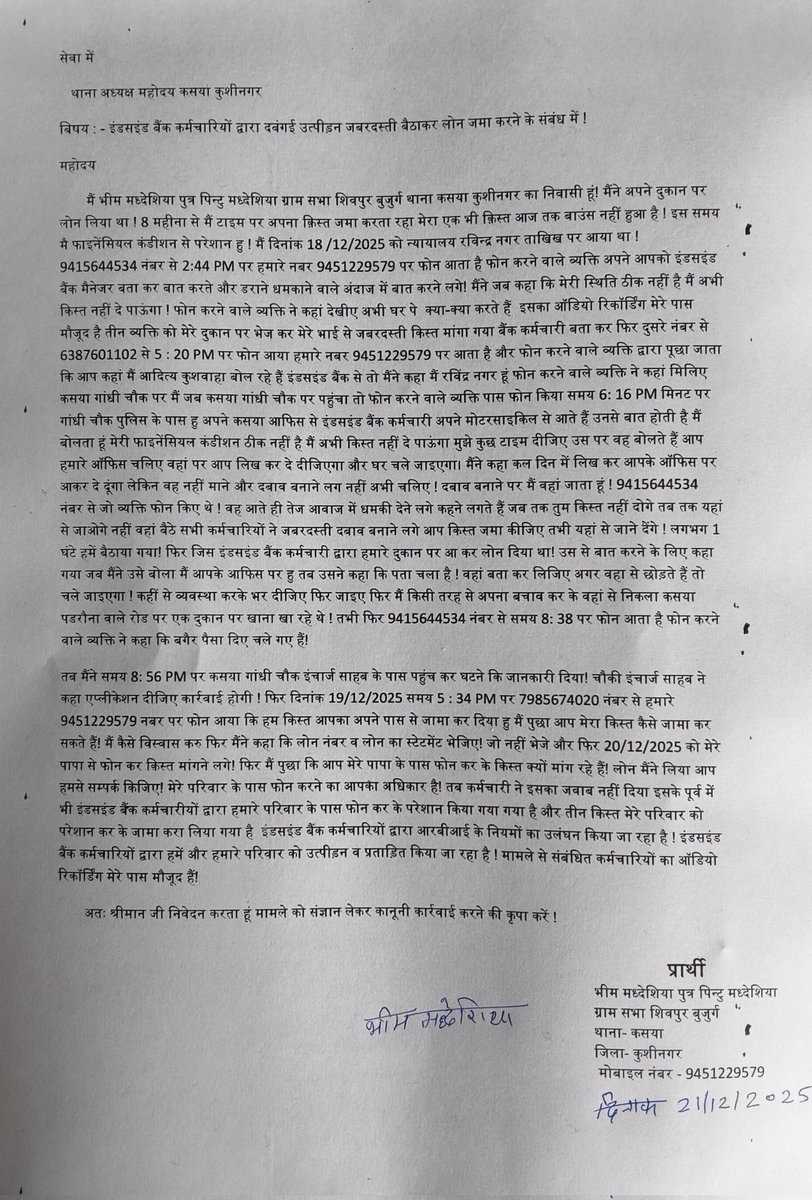 सेवा में
थाना अध्यक्ष महोदय कसया कुशीनगर
बिषय : - इंडसइंड बैंक कर्मचारियों द्वारा दबंगई उत्पीड़न जबरदस्ती बैठाकर लोन जमा करने के संबंध में !
महोदय
मैं भीम मध्देशिया पुत्र पिन्टु मध्देशिया ग्राम सभा शिवपुर बुजुर्ग थाना कसया कुशीनगर का निवासी हूं! मैंने अपने दुकान पर
लोन लिया था ! 8 महीना से मैं टाइम पर अपना क़िस्त जमा करता रहा मेरा एक भी क़िस्त आज तक बाउंस नहीं हुआ है ! इस समय
मै फाइनेंसियल कंडीशन से परेशान हु ! मैं दिनांक 18 /12/2025 को न्यायालय रविन्द्र नगर ताखिख पर आया था !
9415644534 नंबर से 2:44 PM पर हमारे नबर 9451229579 पर फोन आता है फोन करने वाले व्यक्ति अपने आपको इंडसइंड
बैंक मैनेजर बता कर बात करते और डराने धमकाने वाले अंदाज में बात करने लगे! मैंने जब कहा कि मेरी स्थिति ठीक नहीं है मैं अभी
किस्त नहीं दे पाऊंगा ! फोन करने वाले व्यक्ति ने कहां देखीए अभी घर पे क्या-क्या करते हैं इसका ऑडियो रिकॉर्डिंग मेरे पास
मौजूद है तीन व्यक्ति को मेरे दुकान पर भेज कर मेरे भाई से जबरदस्ती किस्त मांगा गया बैंक कर्मचारी बता कर फिर दुसरे नंबर से
6387601102 से 5 : 20 PM पर फोन आया हमारे नबर 9451229579 पर आता है और फोन करने वाले व्यक्ति द्वारा पूछा जाता
कि आप कहां मैं आदित्य कुशवाहा बोल रहे हैं इंडसइंड बैंक से तो मैंने कहा मैं रविंद्र नगर हूं फोन करने वाले व्यक्ति ने कहां मिलिए
कसया गांधी चौक पर मैं जब कसया गांधी चौक पर पहुंचा तो फोन करने वाले व्यक्ति पास फोन किया समय 6: 16 PM मिनट पर
गांधी चौक पुलिस के पास हु अपने कसया आफिस से इंडसइंड बैंक कर्मचारी अपने मोटरसाइकिल से आते हैं उनसे बात होती है मैं
बोलता हूं मेरी फाइनेंसियल कंडीशन ठीक नहीं है मैं अभी किस्त नहीं दे पाऊंगा मुझे कुछ टाइम दीजिए उस पर वह बोलते हैं आप
हमारे ऑफिस चलिए वहां पर आप लिख कर दे दीजिएगा और घर चले जाइएगा। मैंने कहा कल दिन में लिख कर आपके ऑफिस पर
आकर दे दूंगा लेकिन वह नहीं माने और दबाव बनाने लग नहीं अभी चलिए ! दबाव बनाने पर मैं वहां जाता हूं ! 9415644534
नंबर से जो व्यक्ति फोन किए थे ! वह आते ही तेज आवाज में धमकी देने लगे कहने लगते हैं जब तक तुम किस्त नहीं दोगे तब तक यहां
से जाओगे नहीं वहां बैठे सभी कर्मचारियों ने जबरदस्ती दबाव बनाने लगे आप किस्त जमा कीजिए तभी यहां से जाने देंगे ! लगभग 1
घंटे हमें बैठाया गया! फिर जिस इंडसइंड बैंक कर्मचारी द्वारा हमारे दुकान पर आ कर लोन दिया था! उस से बात करने के लिए कहा
गया जब मैंने उसे बोला मैं आपके आफिस पर हु तब उसने कहा कि पता चला है ! वहां बता कर लिजिए अगर वहा से छोड़ते हैं तो
चले जाइएगा ! कहीं से व्यवस्था करके भर दीजिए फिर जाइए फिर मैं किसी तरह से अपना बचाव कर के वहां से निकला कसया
पडरौना वाले रोड पर एक दुकान पर खाना खा रहे थे ! तभी फिर 9415644534 नंबर से समय 8: 38 पर फोन आता है फोन करने
वाले व्यक्ति ने कहा कि बगैर पैसा दिए चले गए हैं!
तब मैंने समय 8: 56 PM पर कसया गांधी चौक इंचार्ज साहब के पास पहुंच कर घटने कि जानकारी दिया! चौकी इंचार्ज साहब ने
कहा एप्लीकेशन दीजिए कार्रवाई होगी ! फिर दिनांक 19/12/2025 समय 5 : 34 PM पर 7985674020 नंबर से हमारे
9451229579 नबर पर फोन आया कि हम किस्त आपका अपने पास से जामा कर दिया हु मैं पुछा आप मेरा किस्त कैसे जामा कर
सकते हैं! मैं कैसे विस्वास करु फिर मैंने कहा कि लोन नंबर व लोन का स्टेटमेंट भेजिए! जो नहीं भेजे और फिर 20/12/2025 को मेरे
पापा से फोन कर किस्त मांगने लगे! फिर मैं पुछा कि आप मेरे पापा के पास फोन कर के किस्त क्यों मांग रहे हैं! लोन मैंने लिया आप
हमसे सम्पर्क किजिए! मेरे परिवार के पास फोन करने का आपका अधिकार है! तब कर्मचारी ने इसका जवाब नहीं दिया इसके पूर्व में
भी इंडसइंड बैंक कर्मचारीयों द्वारा हमारे परिवार के पास फोन कर के परेशान किया गया गया है और तीन किस्त मेरे परिवार को
परेशान कर के जामा करा लिया गया है इंडसइंड बैंक कर्मचारियों द्वारा आरबीआई के नियमों का उलंघन किया जा रहा है ! इंडसइंड
बैंक कर्मचारियों द्वारा हमें और हमारे परिवार को उत्पीड़न व प्रताड़ित किया जा रहा है ! मामले से संबंधित कर्मचारियों का ऑडियो
रिकॉर्डिंग मेरे पास मौजूद हैं!
अतः श्रीमान जी निवेदन करता हूं मामले को संज्ञान लेकर कानूनी कार्रवाई करने की कृपा करें !
प्रार्थी
भीम मध्देशिया पुत्र पिन्टु मध्देशिया
ग्राम सभा शिवपुर बुजुर्ग
थाना- कसया
जिला- कुशीनगर
मोबाइल नंबर - 9451229579
भीम मध्देशिया
दिनांक 21/12/2025